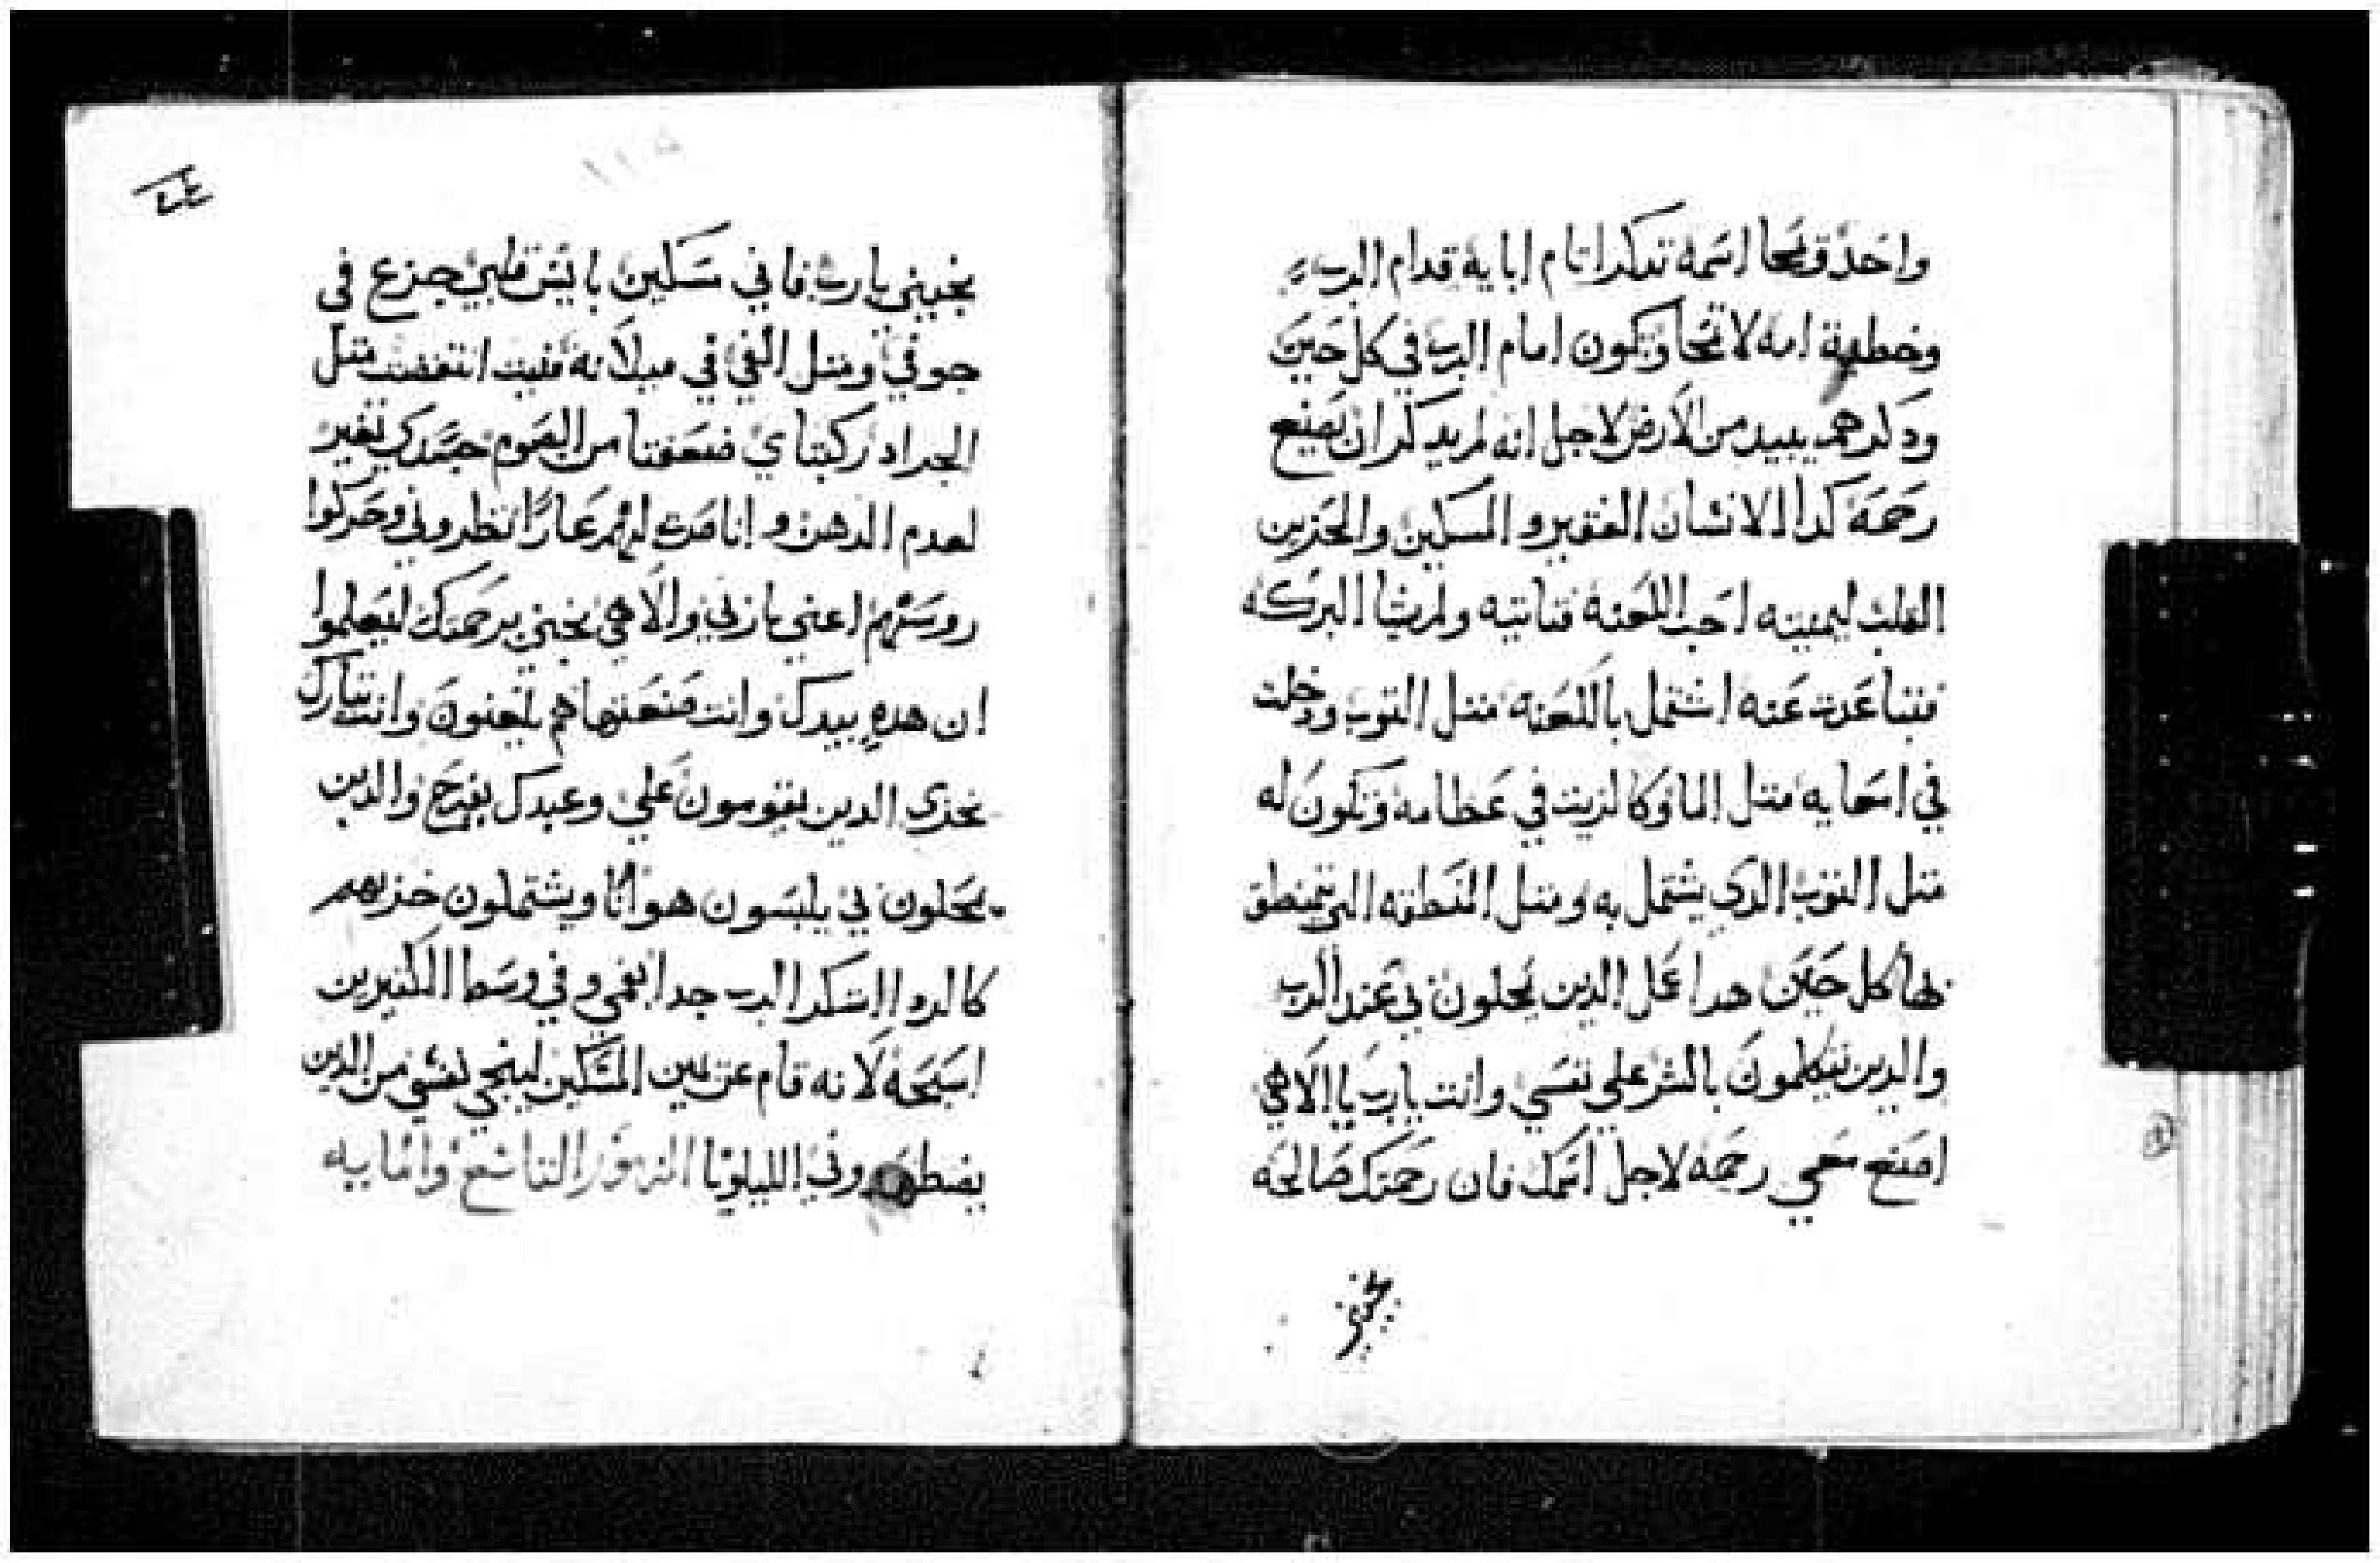 واحد ويمحا اسمه تدكر اتام ابايه قدام الرب
وخطية امه لا تمحا وتكون امام الرب في كل حين
ودكرهم يبيد من الارض لاجل انه لم يدكر ان يصنع
رحمة كدا الانسان الفقير والمسكين والحزين
القلب ليميته احب اللعنة فتاتيه ولم يشا البركه
فتباعدت عنه اشتمل باللعنه متل التوب ودخلت
في امعايه متل الما وكالزيت في عظامه وتكون له
متل التوب الدي يشتمل به ومتل المنطقه التي يتمنطق
بها كل حين هدا عمل الدين يمحلون بي عند الرب
والدين يتكلمون بالشر علي نفسي وانت يا رب يا الاهي
اصنع معي رحمه لاجل اسمك فان رحمتك صالحه
نجيني
نجيني يا رب فاني مسكين بايس قلبي جزع في
جوفي ومتل الفي في ميلانه فنيت انتفضت متل
الجراد ركبتاي ضعفتا من الصوم جسدي تغير
لعدم الدهن و انا صرت لهم عارًا نظروني وحركوا
روسهم اعني يا ربي والاهي نجني برحمتك ليعلموا
ان هده بيدك وانت صنعتها هم يلعنون وانت تبارك
يخزي الدين يقومون علي وعبدك يفرح والدين
يمحلون بي يلبسون هوانًا ويشتملون خزيهم
كالردا اشكر الرب جدا بفمي وفي وسط الكتيرين
اسبحه لانه قام عن يمين المسكين لينجي نفسي من الدين
يضطهدوني الليلويا المزمور التاسع وامايه